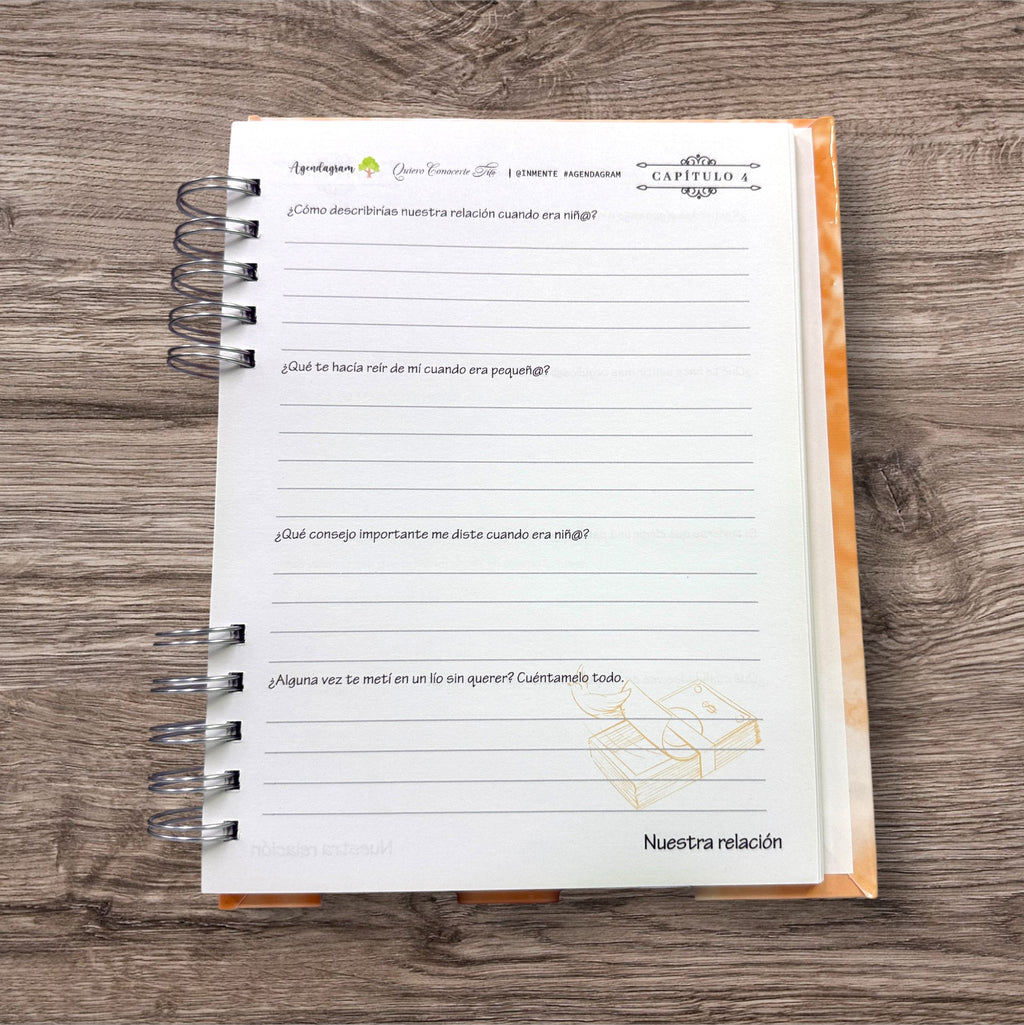 Agendagram Quiero Conocerte Tito | @INMENTE #AGENDAGRAM
CAPÍTULO 4
¿Cómo describirías nuestra relación cuando era niñ@?
¿Qué te hacía reír de mí cuando era pequeñ@?
¿Qué consejo importante me diste cuando era niñ@?
¿Alguna vez te metí en un lío sin querer? Cuéntamelo todo.
Nuestra relación